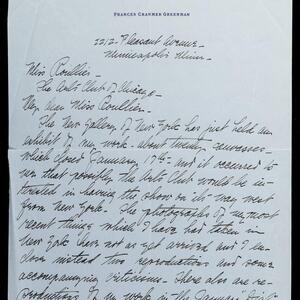 FRANCES CRANMER GREENMAN
2212 Pleasant Avenue -
Minneapolis Minn -
Miss Roullier -
The Arts Club of Chicago -
My dear Miss Roullier -
The New Gallery of New York has just held an
exhibit of my work - about twenty canvasses -
which closed January 17th - and it occurred to
me that possibly the Arts Club would be in-
terested in having the show on its way west
from New York. The photographs of my most
recent things which I have had taken in
New York have not as yet arrived and I en-
close instead two reproductions and some
accompanying criticisms. There also are re-
productions of my work in the